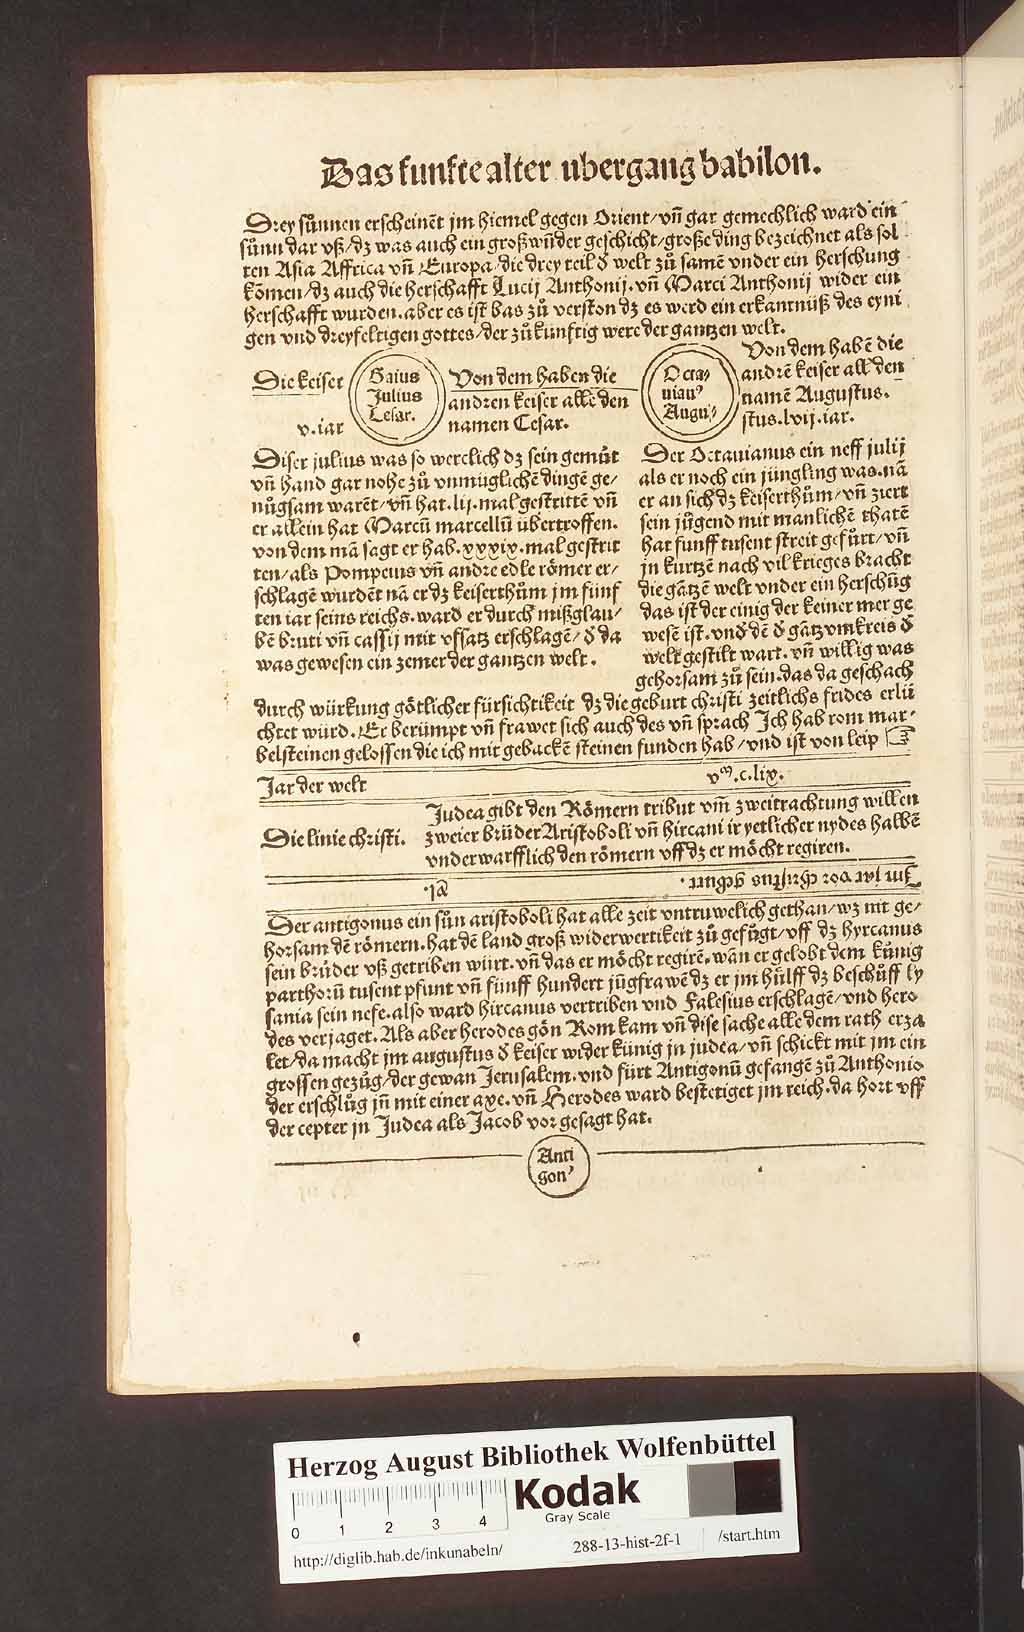 Das funfte alter ubergang babilon.
Drey sůnnen erscheinẽt jm hiemel gegen Orient/vñ gar gemechlich ward ein
sůnn dar vß/dz was auch ein groß wñder geschicht/große ding bezeichnet als sol
ten Asia Affrica vñ Europa/die drey teil ď welt zů samẽ vnder ein herschung
kõmen/dz auch die herschafft Lucij Anthonij.vñ Marci Anthonij wider ein
herschafft wurden.aber es ist bas zů verston dz es werd ein erkantnüß des eyni
gen vnd dreyfeltigen gottes/der zůkünftig were der gantzen welt.
Die keiser
v.iar
Gaius
Julius
Cesar.
Von dem haben die
andren keiser alle den
namen Cesar.
Octa⸗
uian⁹
Augu⸗
Von dem habẽ die
andrẽ keiser all den
namẽ Augustus.
stus.lvij.iar.
Diser julius was so werclich dz sein gemůt
vñ hand gar nohe zů vnmüglichẽ dingẽ ge/
nůgsam warẽt/vñ hat.lij.mal gestrittẽ vñ
er allein hat Marcũ marcellũ übertroffen.
von dem mã sagt er hab.xxxix.mal gestrit
ten/als Pompeius vñ andre edle römer er/
schlagẽ wurdẽt nã er dz keiserthům jm fünf
ten iar seins reichs.ward er durch mißglau/
bẽ bruti vñ cassij mit vffsatz erschlagẽ/ď da
was gewesen ein zemer der gantzen welt.
Der Octauianus ein neff julij
als er noch ein jüngling was.nã
er an sich dz keiserthům/vñ ziert
sein jůgend mit manlichẽ thatẽ
hat funff tusent streit gefůrt/vñ
jn kurtzẽ nach vil krieges bracht
die gãtzẽ welt vnder ein herschũg
das ist der einig der keiner mer ge
wesẽ ist.vnď dẽ ď gãtz vmkreis ď
welt gestilt wart.vñ willig was
gehorsam zů sein.das da geschach
durch würkung götlicher fürsichtikeit dz die geburt christi zeitlichs frides erlü
chtet würd.Er berümpt vñ frawet sich auch des vñ sprach Ich hab rom mar⸗
belsteinen gelossen die ich mit gebackẽ steinen funden hab/vnd ist von leip ☞
Jar der welt
vᵐ.c.lix.
Die linie christi.
Judea gibt den Römern tribut vm̃ zweitrachtung willen
zweier brüder Aristoboli vñ hircani ir yetlicher nydes halbẽ
vnderwarfflich den römern vff dz er möcht regiren.
Jm jar vor christus geburt.
.xl.
Der antigonus ein sůn aristoboli hat alle zeit vntruwelich gethan/wz nit ge/
horsam dẽ römern.hat dẽ land groß widerwertikeit zů gefůgt/vff dz hyrcanus
sein brůder vß getriben würt.vñ das er möcht regirẽ.wãn er gelobt dem kůnig
parthorũ tusent pfunt vñ fünff hundert jũgfrawẽ dz er jm hülff dz beschüff ly
sania sein nefe.also ward hircanus vertriben vnd Falesius erschlagẽ/vnd hero
des verjaget.Als aber herodes gõn Rom kam vñ dise sache alle dem rath erza
let/da macht jm augustus ď keiser wider künig jn judea/vñ schickt mit jm ein
grossen gezůg/der gewan Jerusalem.vnd fürt Antigonũ gefangẽ zů Anthonio
der erschlůg jñ mit einer axe.vñ Herodes ward bestetiget jm reich.da hort vff
der cepter jn Judea als Jacob vor gesagt hat.
Anti
gon⁹
Herzog August Bibliothek Wolfenbüttel
0 1 2 3 4
Kodak
Gray Scale
http://diglib.hab.de/inkunabeln/
288-13-hist-2f-1
/start.htm